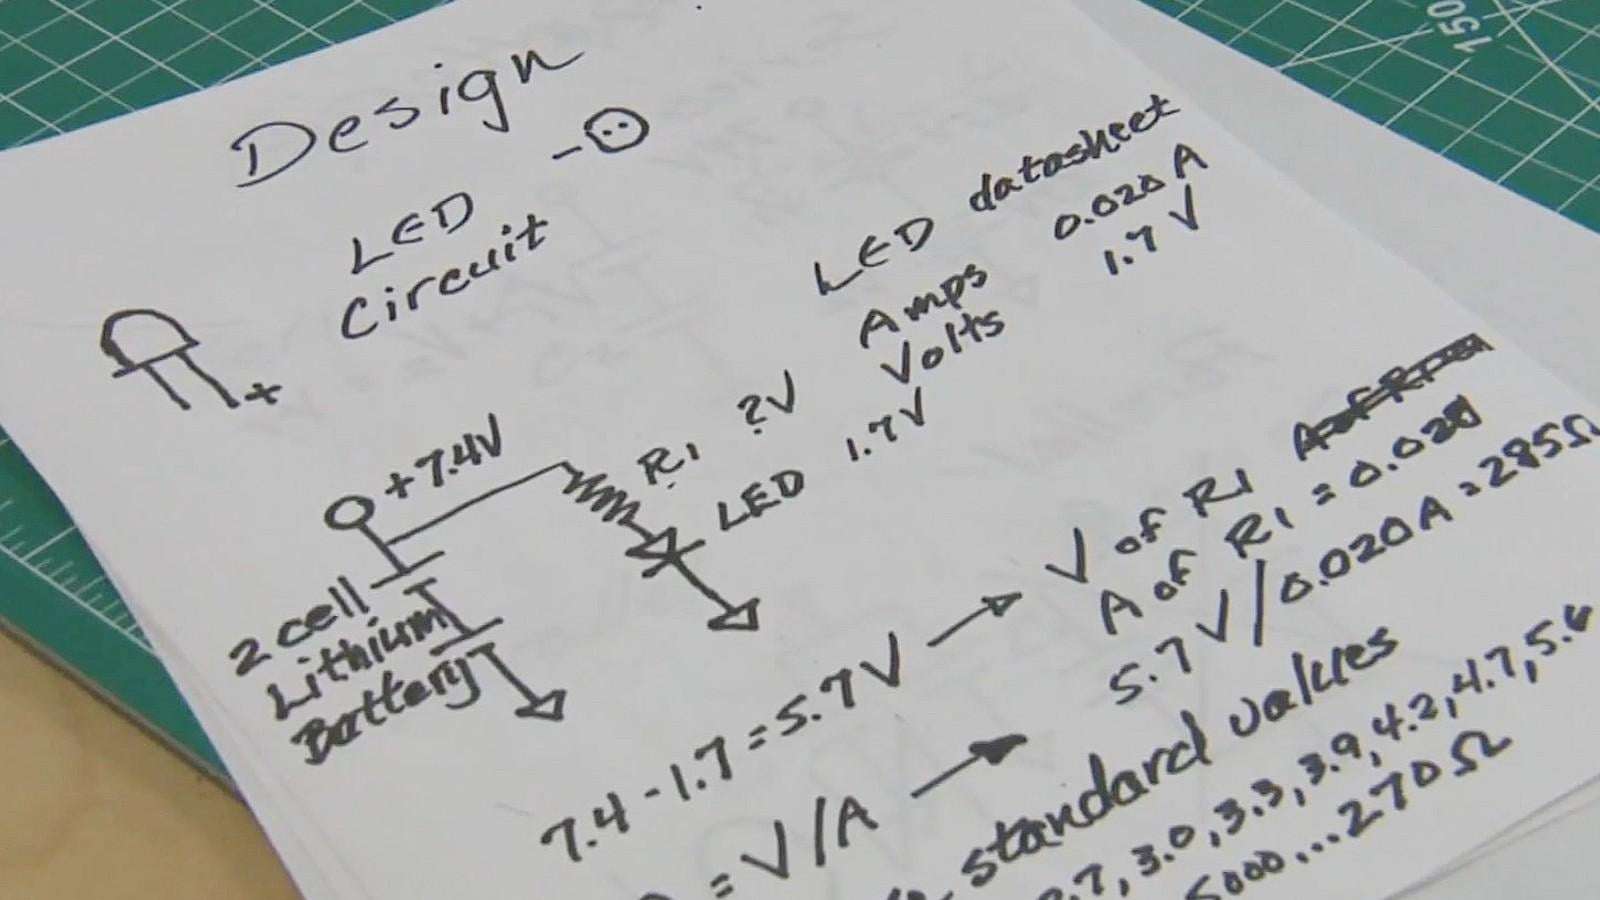 Design
LED
Circuit
LED datasheet
Amps 0.020 A
Volts 1.7 V
+
+7.4V
R1 ?V
LED 1.7V
2 cell
Lithium
Battery
7.4 - 1.7 = 5.7V
V of R1
A of R1 = 0.020
5.7V/0.020A = 285Ω
= V/A
standard values
.7, 3.0, 3.3, 3.9, 4.2, 4.7, 5.6
5000...270Ω
150